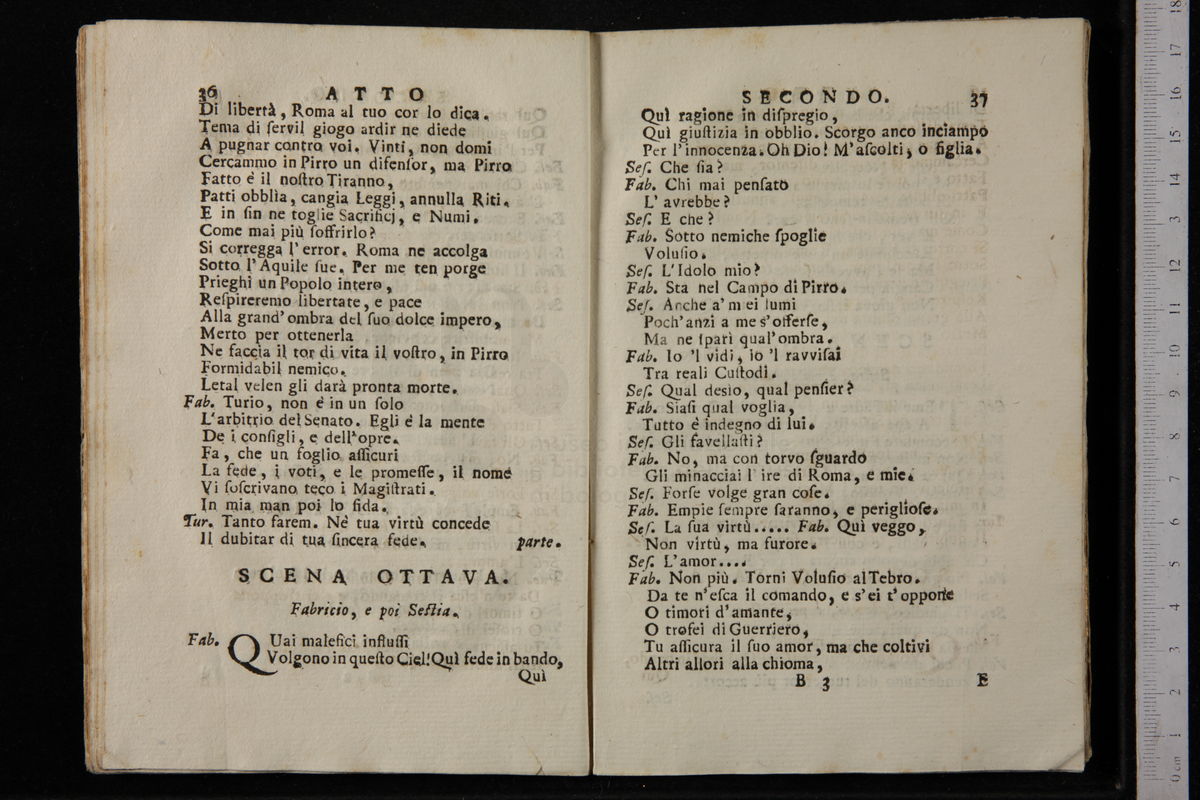 36 ATTO
Di libertà, Roma al tuo cor lo dica.
Tema di ſervil giogo ardir ne diede
A pugnar contro voi. Vinti, non domi
Cercammo in Pirro un difenſor, ma Pirro
Fatto è il noſtro Tiranno,
Patti obblia, cangia Leggi, annulla Riti.
E in fin ne toglie Sacrificj, e Numi.
Come mai più ſoffrirlo?
Si corregga l'error. Roma ne accolga
Sotto l'Aquile ſue. Per me ten porge
Prieghi un Popolo intero,
Reſpireremo libertate, e pace
Alla grand'ombra del ſuo dolce impero,
Merto per ottenerla
Ne faccia il tor di vita il voſtro, in Pirro
Formidabil nemico.
Letal velen gli darà pronta morte.
Fab. Turio, non è in un ſolo
L'arbitrio del Senato. Egli é la mente
De i conſigli, e dell'opre.
Fa, che un foglio aſſicuri
La fede, i voti, e le promeſſe, il nome
Vi ſoſcrivano teco i Magiſtrati.
In mia man poi lo fida.
Tur. Tanto farem. Nè tua virtù concede
Il dubitar di tua ſincera fede. parte.
SCENA OTTAVA.
Fabricio, e poi Seſtia.
Fab. QUai malefici influſſi
Volgono in queſto Ciel! Quì fede in bando,
Quì
SECONDO. 37
Quì ragione in diſpregio,
Quì giuſtizia in obblio. Scorgo anco inciampo
Per l'innocenza. Oh Dio! M'aſcolti, o figlia.
Seſ. Che ſia?
Fab. Chi mai penſato
L' avrebbe?
Seſ. E che?
Fab. Sotto nemiche ſpoglie
Voluſio.
Seſ. L'Idolo mio?
Fab. Sta nel Campo di Pirro.
Seſ. Anche a' m ei lumi
Poch'anzi a me s'offerſe,
Ma ne ſparì qual'ombra.
Fab. Io 'l vidi, io 'l ravviſai
Tra reali Cuſtodi.
Seſ. Qual desìo, qual penſier?
Fab. Siaſi qual voglia,
Tutto è indegno di lui.
Seſ. Gli favellaſti?
Fab. No, ma con torvo ſguardo
Gli minacciai l' ire di Roma, e mie.
Seſ. Forſe volge gran coſe.
Fab. Empie ſempre ſaranno, e periglioſe.
Seſ. La ſua virtù..... Fab. Quì veggo,
Non virtù, ma furore.
Seſ. L'amor....
Fab. Non più. Torni Voluſio al Tebro.
Da te n'eſca il comando, e s'ei t'opporte
O timori d'amante,
O trofei di Guerriero,
Tu aſſicura il ſuo amor, ma che coltivi
Altri allori alla chioma,
B 3 E
0 cm 1 2 3 4 5 6 7 8 9 10 11 12 13 14 15 16 17 18